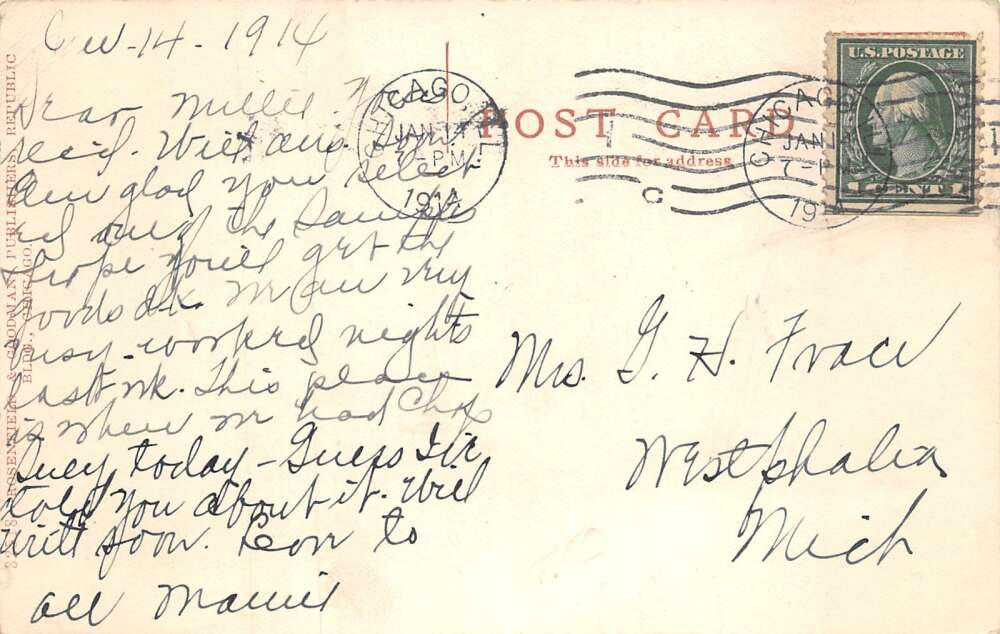 14 - 1914
Dear Millie. Yours
rec'd. Will ans. soon
Am glad you select
ed out the
hope you'll get the
goods O.K. We are very
busy - worked nights
last wk. This place
is where we had Chop
Suey today - Guess I've
told you about it. Will
write soon. Love to
all Mamie
CHICAGO, ILL.
JAN 14
7 - PM
1914
POST CARD
This side for address
C
CHICAGO
JAN 14
7 - P
1914
U.S. POSTAGE
1 CENT 1
Mrs. G. H. Frace
Westphalia
Mich
ROSENFIELD & GOODMAN PUBLISHERS, REPUBLIC
BLDG., CHICAGO.